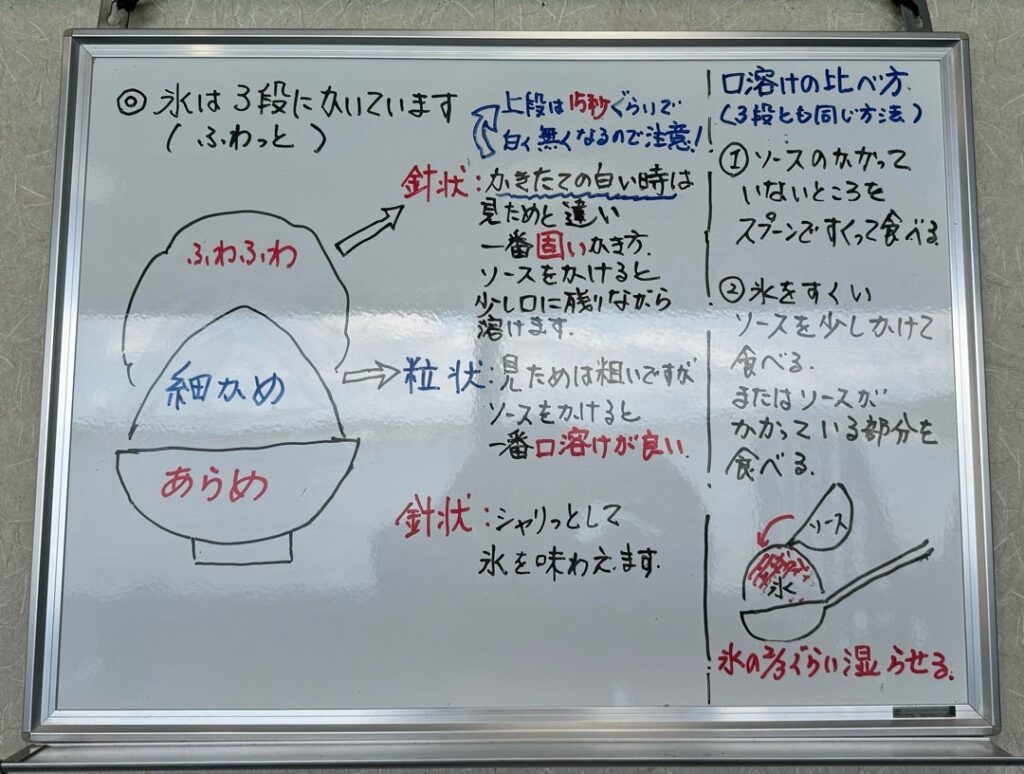 ◎ 氷は3段にかいています
(ふわっと)
上段は15秒ぐらいで
白く無くなるので注意!
ふわふわ
針状:かきたての白い時は
見ためと違い
一番固いかき方.
ソースをかけると
少し口に残りながら
溶けます.
細かめ
粒状:見ためは粗いですが
ソースをかけると
一番口溶けが良い.
あらめ
針状:シャリっとして
氷を味わえます.
口溶けの比べ方
(3段とも同じ方法)
① ソースのかかって
いないところを
スプーンですくって食べる.
② 氷をすくい
ソースを少しかけて
食べる.
またはソースが
かかっている部分を
食べる.
ソース
氷
氷の2/3ぐらい湿らせる.